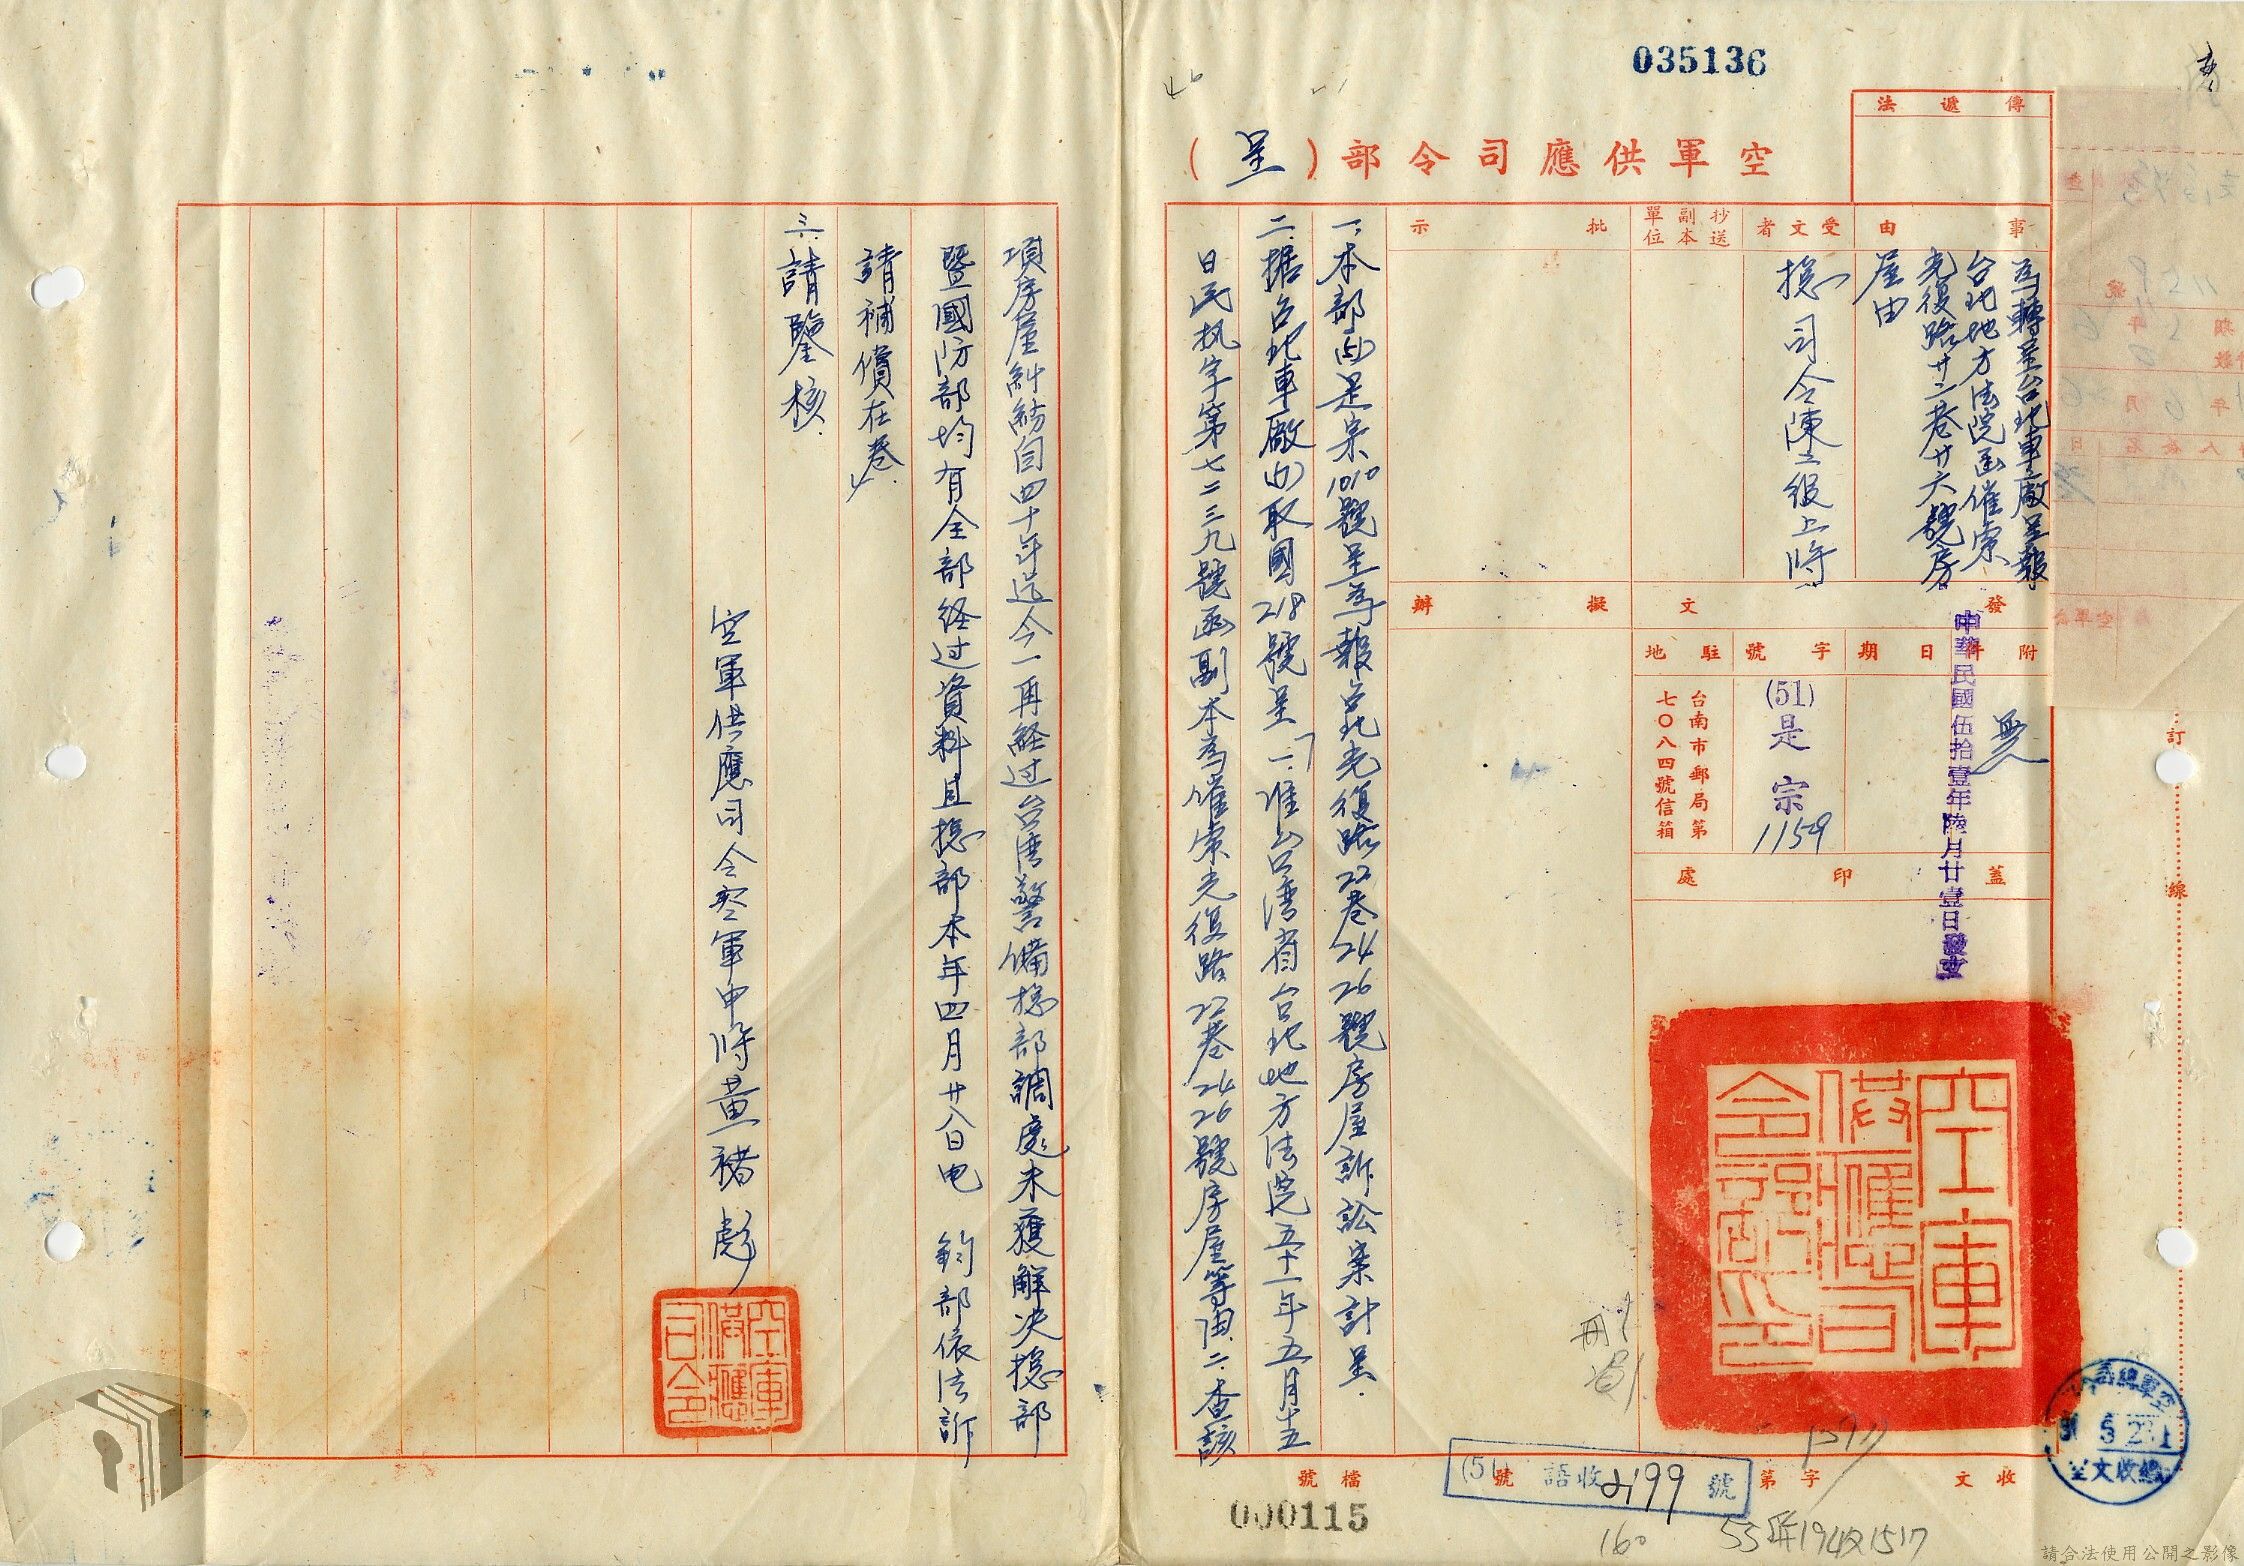 035136
傳遞法
空軍供應司令部(呈)
事由
為轉呈台北車廠呈報
台北地方法院函催索
光復路廿二巷廿六號房
屋由
受文者
總司令陳二級上將
抄送副本單位
批示
擬辦
發文
附件
無
日期
中華民國伍拾壹年陸月廿壹日發文
字號
(51)是宗1159
駐地
台南市郵局第
七〇八四號信箱
蓋印處
空軍供應司令部印
一、本部(51)是宗1010號呈為報台北光復路22巷24 26號房屋訴訟案計呈.
二.据台北車廠(51)取國218號呈「一.准台湾省台北地方法院五十一年五月十五
日民执字第七二三九號函副本為催索光復路22巷24 26號房屋等由.二.查該
項房屋糾紛自四十年迄今一再經过台湾警備總部調處未獲解决總部
暨國防部均有全部经过資料且總部本年四月廿八日电 鈞部依法訴
請補償在卷」
三.請鑒核.
空軍供應司令空軍中將黃褚彪
空軍供應司令
訂
線
收文
字第
號
檔號
(51)語收2199號
000115
160
空軍總司令
總收文
請合法使用公開之影像